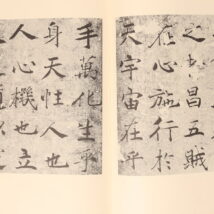 之者昌五賊
在心施行於
天宇宙在乎
手萬化生乎
身天性人也
人心機也立